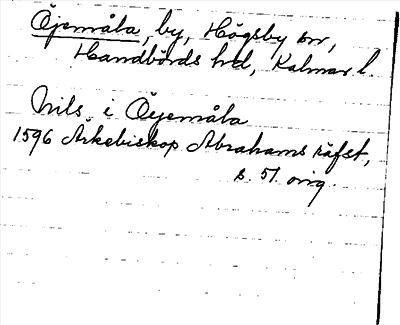 Öjemåla, by, Högsby sn,
Handbörds hd, Kalmar l.
Nils i Öyemåla
1596 Ärkebiskop Abrahams räfst,
s. 51. orig.